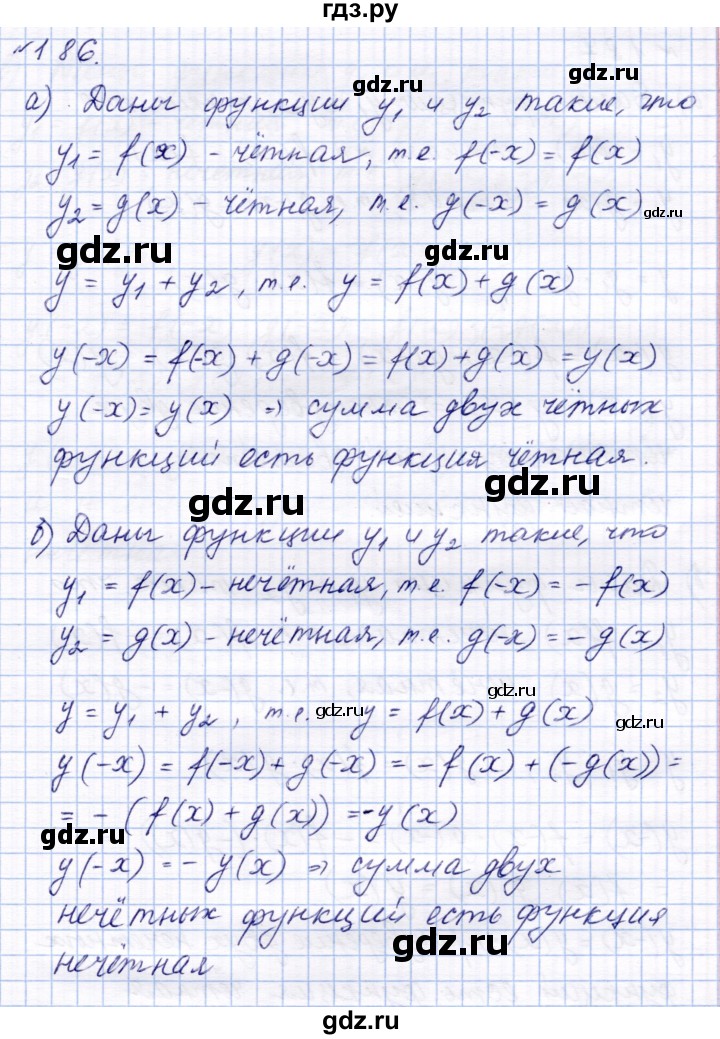 гдз.ру
№186.
а) Даны функции y₁ и y₂ такие, что
gdz.ru
y₁ = f(x) – чётная, т.е. f(-x) = f(x)
gdz.ru
y₂ = g(x) – чётная, т.е. g(-x) = g(x)
gdz.ru
gdz.ru
gdz.ru
y = y₁ + y₂, т.е. y = f(x) + g(x)
y(-x) = f(-x) + g(-x) = f(x) + g(x) = y(x)
gdz.ru
gdz.ru
y(-x) = y(x) ⇒ сумма двух чётных
функций есть функция чётная.
gdz.ru
gdz.ru
б) Даны функции y₁ и y₂ такие, что
y₁ = f(x) – нечётная, т.е. f(-x) = – f(x)
gdz.ru
gdz.ru
y₂ = g(x) – нечётная, т.е. g(-x) = – g(x)
gdz.ru
y = y₁ + y₂, т.е. y = f(x) + g(x)
gdz.ru
y(-x) = f(-x) + g(-x) = – f(x) + (– g(x)) =
gdz.ru
= – (f(x) + g(x)) = – y(x)
gdz.ru
y(-x) = – y(x) ⇒ сумма двух
gdz.ru
нечётных функций есть функция
gdz.ru
нечётная
gdz.ru